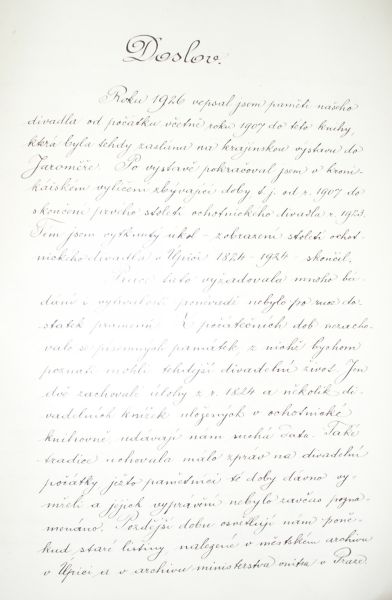 Doslov.
Roku 1926 vepsal jsem paměti našeho
divadla od počátku včetně roku 1907 do této knihy,
která byla tehdy zaslána na krajinskou výstavu do
Jaroměře. Po výstavě pokračoval jsem v kroni-
kářském vylíčení zbývající doby t. j. od r. 1907 do
skončení prvého století ochotnického divadla r. 1923.
Tím jsem vytknutý úkol - zobrazení století ochot-
nického divadla v Úpici 1824 - 1924 - skončil.
Práce tato vyžadovala mnoho bá-
dání a vytrvalosti poněvadž nebylo po ruce do-
statek pramenů. Z počátečních dob nezacho-
valo se písemných památek, z nichž bychom
poznati mohli tehdejší divadelní život. Jen
dvě zachovalé úlohy z r. 1824 a několik di-
vadelních knížek uložených v ochotnické
knihovně udávají nám suchá data. Také
tradice uchovala málo zpráv na divadelní
počátky ježto pamětníci té doby dávno vy-
mřeli a jejich vyprávění nebylo zavčas pozna-
menáno. Pozdější dobu osvětlují nám poně-
kud staré listiny nalezené v městském archivu
v Úpici a v archivu ministerstva vnitra v Praze.